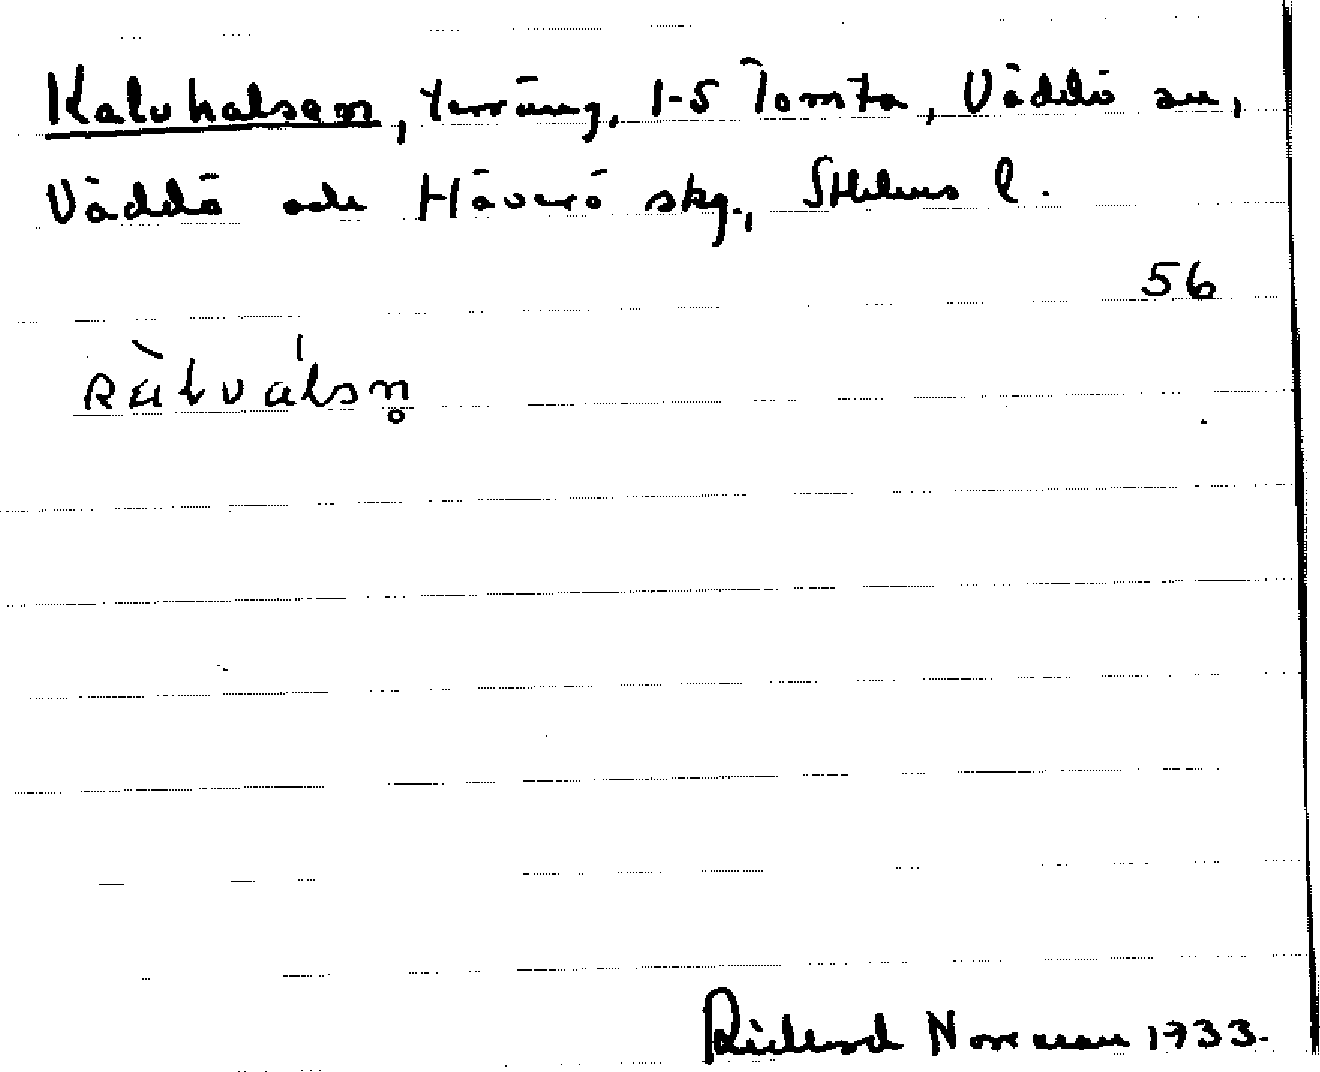 Kalvhalsen, terräng, 1-5 Tomta, Väddö sn,
Väddö och Häverö skg., Sthlms l.
56
kàlválsn̥
Rickard Norrman 1933.